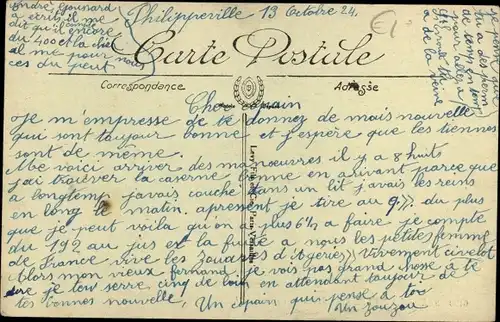 Philippeville 13 Octobre 24
Carte Postale
Correspondance
Adresse
Cher Copain
Je m'empresse de te donnez de mais nouvelle
qui sont toujour bonne et j'espère que les tiennes
sont de même.
Me voici arriver des manoeuvres il y a 8 huits
j'ai trouver la caserne bonne en arivant parce que
a longtemp javais couché dans un lit javais les reins
en long le matin. apresent je tire au 9 du plus
que je peut voila qu'on a plus 6½ a faire je compte
du 192 au jus est la fuite a nous les petites femme
de France vive les Zouaves d'Algerie) Vivement civelot
Alors mon vieux fernand je vois pas grand chose à te
dire je tew serre cinq de loin en attendant toujour de
tes bonnes nouvelle, Un copain qui pense à toi
Un Zouzou
André
a écris il me
dit qu'il encore
du 400 et la
al me pour nous
ces du peut
tu a des perm
de temp en temp
pour aller à
a de la veine